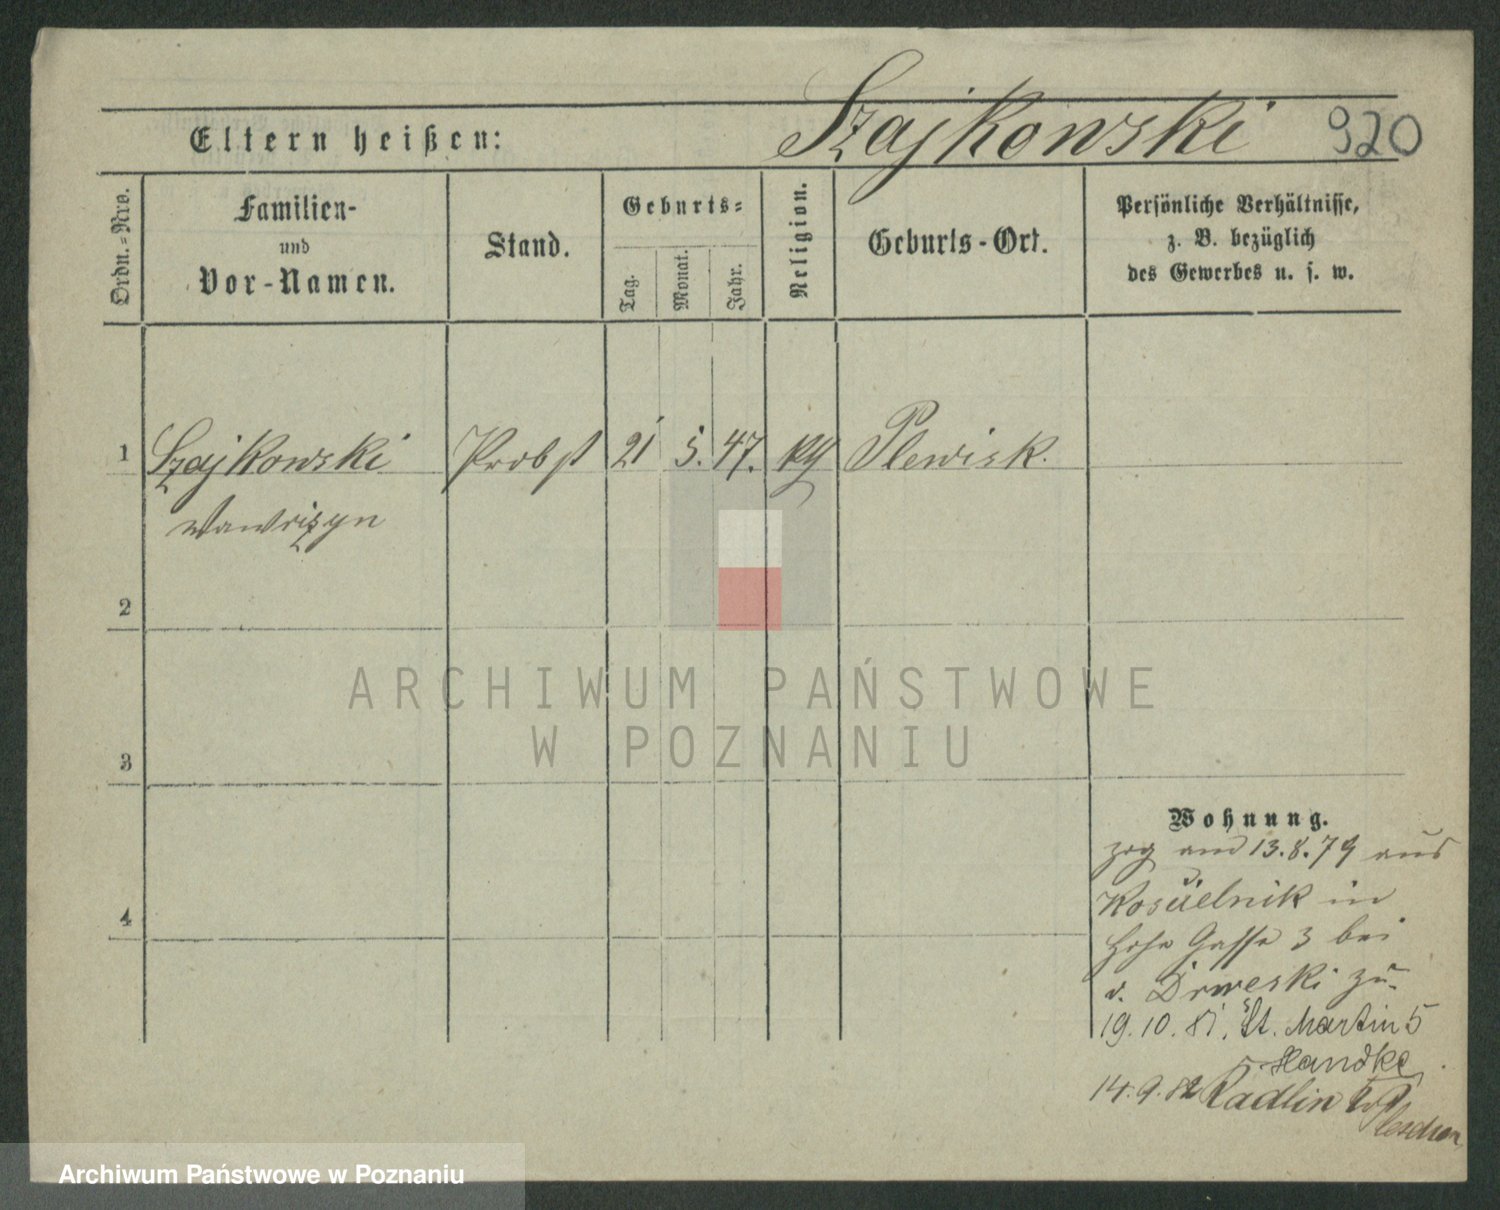 Szajkowski 920
Eltern heißen:
Ordn.=Nro.
Familien-
und
Vor-Namen.
Stand.
Geburts=
Tag.
Monat.
Jahr.
Religion.
Geburts-Ort.
Persönliche Verhältnisse,
z. B. bezüglich
des Gewerbes u. s. w.
1 Szajkowski Probst 21 5. 47. Plewisk.
Wawrizyn
2
3
4
Wohnung.
zog am 13.8.79 aus
Koscielnik in
Hohe Gasse 3 bei
v. Drweski zu.
19.10.81. St. Martin 5
Handke
14.9.82 Radlin
Pleschen
ARCHIWUM PAŃSTWOWE
W POZNANIU
Archiwum Państwowe w Poznaniu